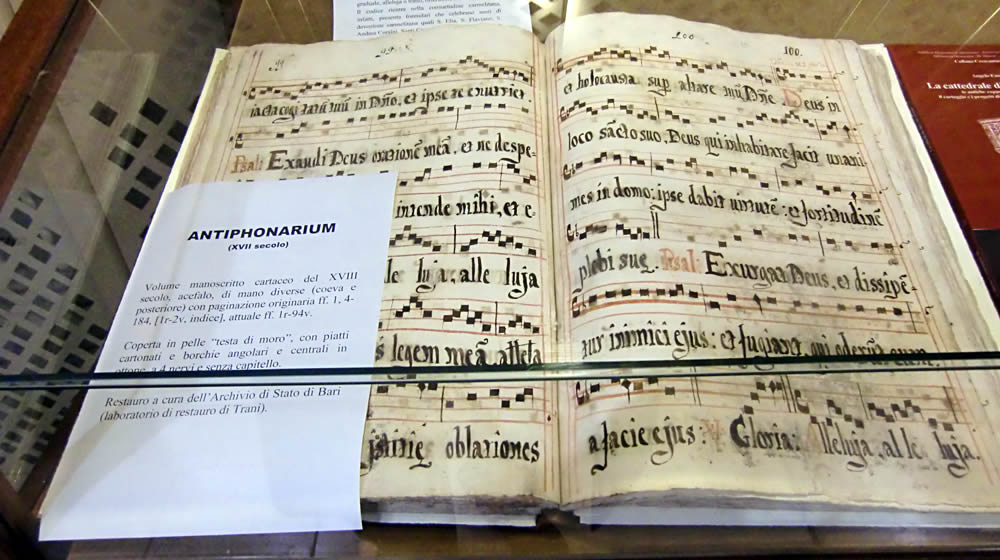 graduale, alleluia o tratto,
Il codice rientra nella committenza carmelitana,
infatti, presenta formulari che celebrano santi di
devozione carmelitana quali S. Elia, S. Flaviano, S.
Andrea Corsini, Santi
ANTIPHONARIUM
(XVII secolo)
Volume manoscritto cartaceo del XVIII
secolo, acefalo, di mano diverse (coeva e
posteriore) con paginazione originaria ff. 1, 4-
184, [1r-2v, indice], attuale ff. 1r-94v.
Coperta in pelle “testa di moro”, con piatti
cartonati e borchie angolari e centrali in
ottone, a 4 nervi e senza capitello.
Restauro a cura dell’Archivio di Stato di Bari
(laboratorio di restauro di Trani).
99
iacta cogitatum tuũ in Dño, et ipse te enutriet.
Psal: Exaudi Deus orationẽ meã, et ne despe-
intende mihi, et e-
le luja, alle luja
s legem meã, allela
justitię oblationes
100 100.
et holocausta sup altare tuũ Dñe. Deus in
loco sãcto suo, Deus qui inhabitare facit unani-
mes in domo: ipse dabit virtutẽ: et fortitudinẽ
plebi suę. Psal: Exurgat Deus, et dissipẽ-
tur inimici ejus: et fugiant, qui oderũt eum
a facie ejus: Gloria: Alleluja, al le luja.
La cattedrale d